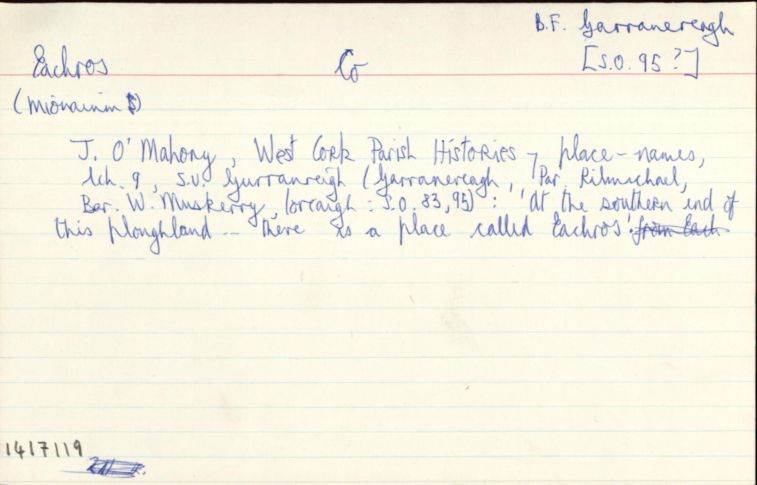 B.F. Garranereagh
Eachros Co [S.O. 95?]
(mionainm S)
J. O'Mahony, West Cork Parish Histories 7 place-names,
lch. 9, s.v. Gurranreigh (Garranereagh, Par Kilmichael,
Bar. W. Muskerry, Corcaigh : S.O. 83, 95) : 'At the southern end of
this ploughland -- there is a place called Eachros'. from Each
1417119